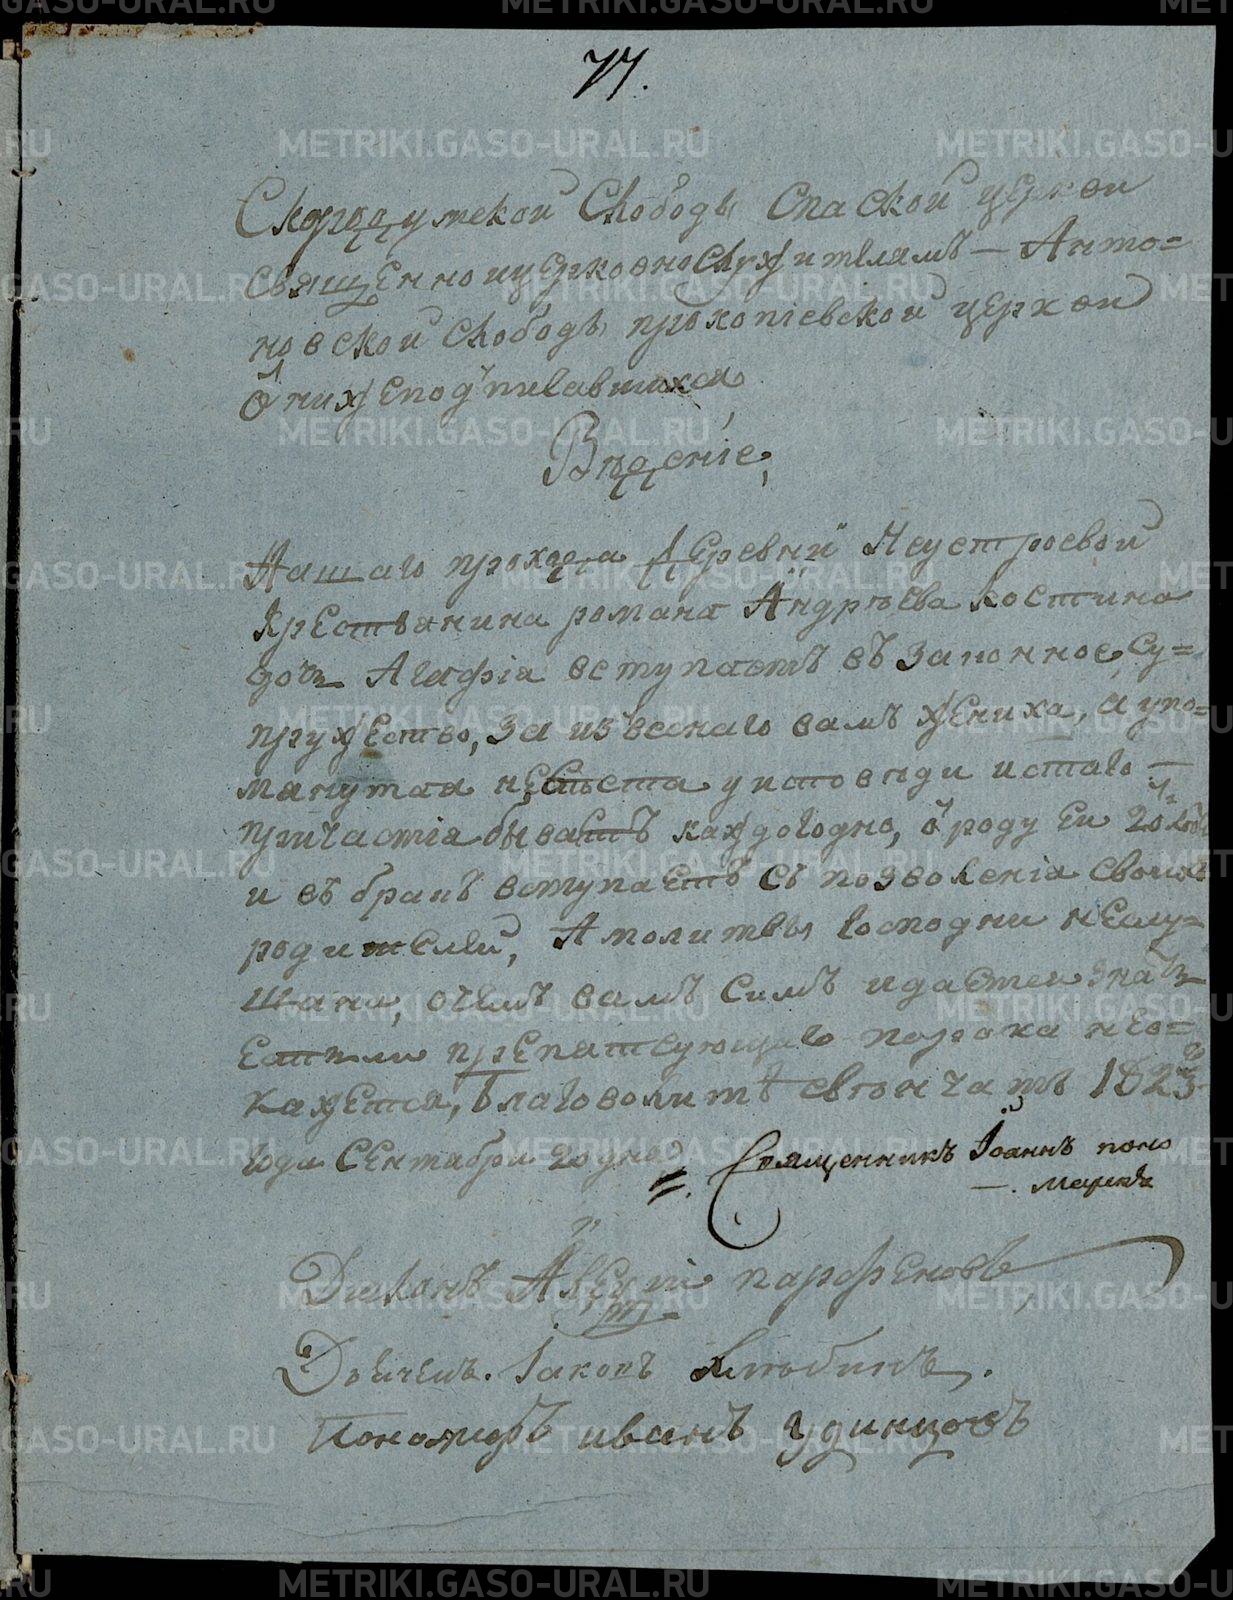 77.
Скородумской Слободы Спаской церкви
священноицерковнослужителямъ — Анто=
новской слободы прокопіевской церкви
ѿ нижеподъписавшихся
Вѣденіе,
Нашаго прихода Деревни Неустроевой
Крестьянина романа Андрѣева Костина
дочь Агафія вступаетъ въ законное, су=
пружество, за извеснаго вамъ жениха, а упо=
мянутая невѣста у исповѣди и стаго —
причастія бываетъ каждогодно, ѿ роду ей 20 летъ
и въ бракъ вступаетъ съ позволенія своихъ
родителей, А молитвы Господни неслу=
шана, очемъ вамъ симъ и дается знать
Естьли препятсвующаго порока нео=
кажется, Благоволитѣ свѣнчать 1823го
года Сентября 20 дня
Священникъ Іоаннъ поно
—. маревъ
Диаконъ Авкути парфеновъ
Дьячекъ. Іаковъ Любинъ.
Пономарь иванъ Удинцовъ
METRIKI.GASO-URAL.RU